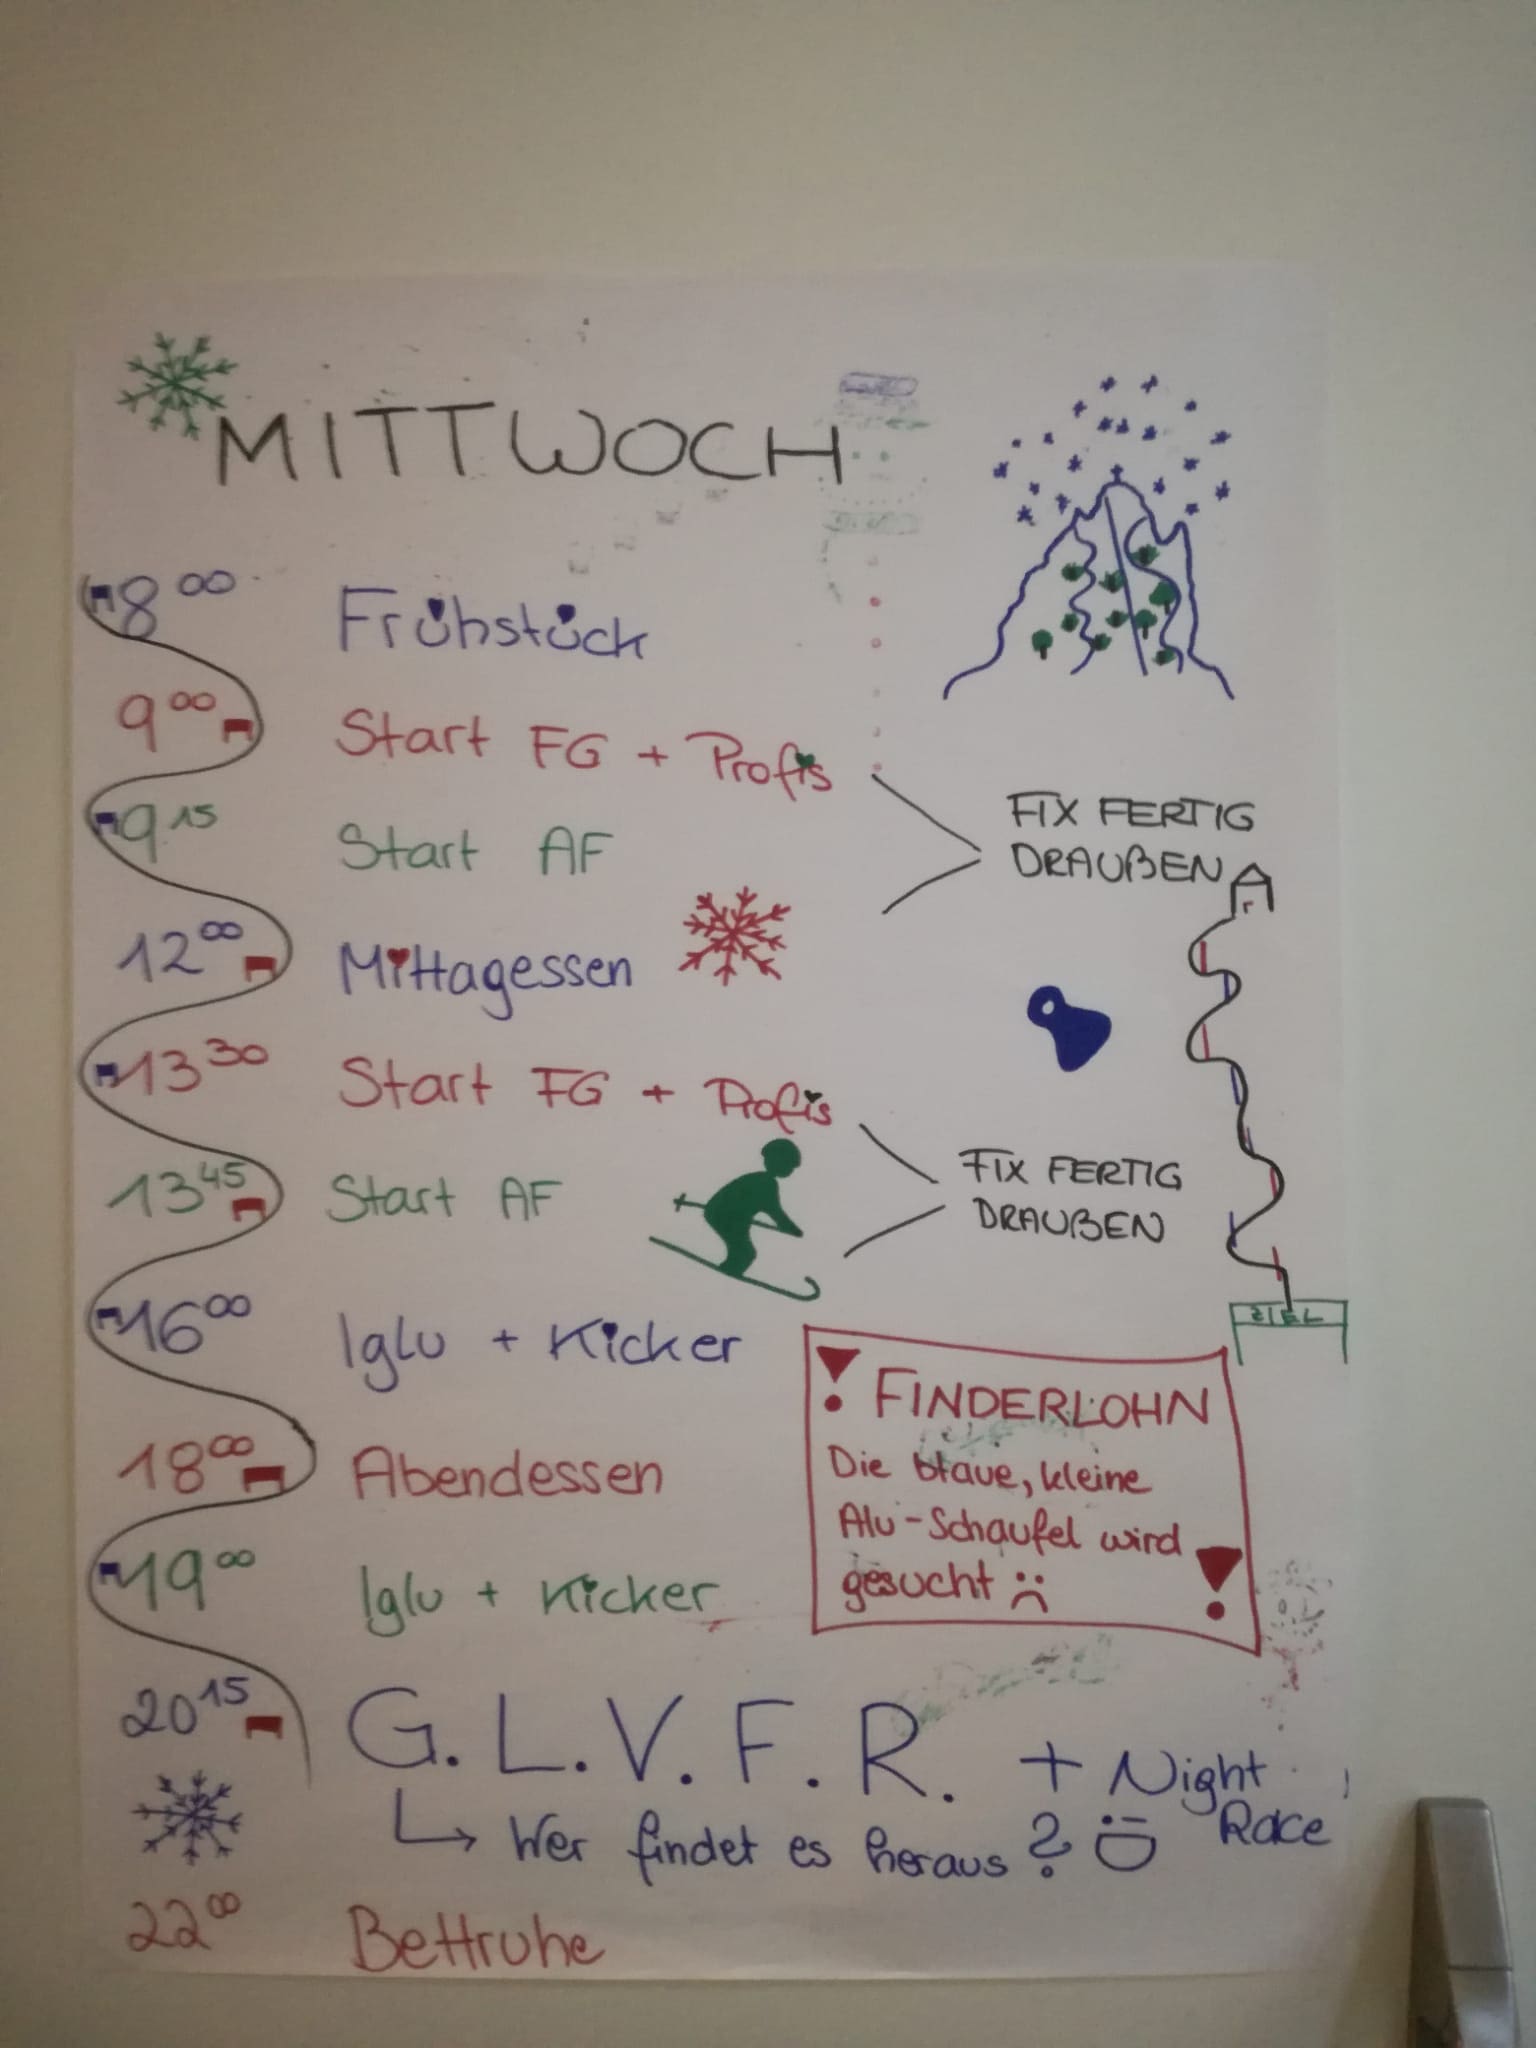 MITTWOCH
8 00 Frühstück
9 00 Start FG + Profis
9 15 Start AF
FIX FERTIG
DRAUßEN
12 00 Mittagessen
13 30 Start FG + Profis
13 45 Start AF
FIX FERTIG
DRAUßEN
ZIEL
16 00 Iglu + Kicker
18 00 Abendessen
19 00 Iglu + Kicker
! FINDERLOHN
Die blaue, kleine
Alu-Schaufel wird
gesucht :( !
20 15 G. L. V. F. R. + Night
Race
↳ Wer findet es heraus?
22 00 Bettruhe